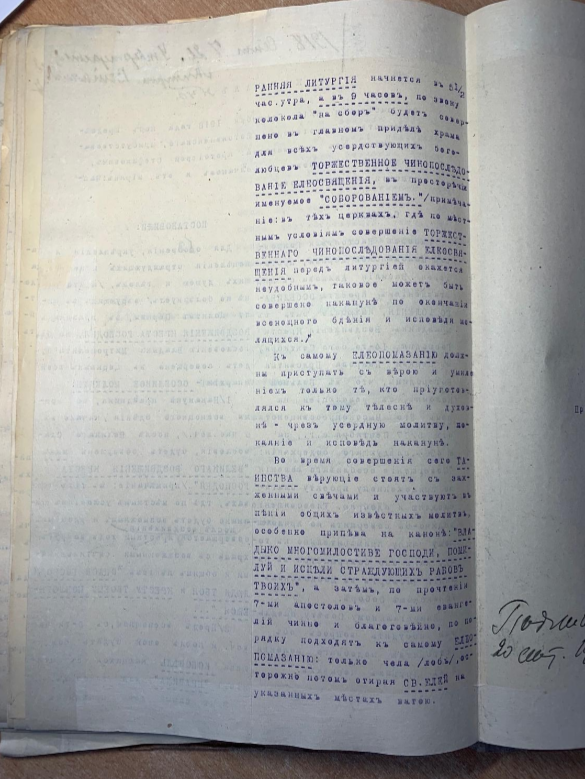 РАННЯЯ ЛИТУРГІЯ начнется въ 5½
час.утра, а въ 9 часовъ, по звону
колокола "на сборъ" будетъ совер-
шено въ главномъ придѣлѣ храма
для всѣхъ усердствующихъ бого-
любцевъ ТОРЖЕСТВЕННОЕ ЧИНОПОСЛѢДО-
ВАНІЕ ЕЛЕОСВЯЩЕНІЯ, въ просторѣчіи
именуемое "СОБОРОВАНІЕМЪ."/примѣча-
ніе:въ тѣхъ церквахъ, гдѣ по мѣст-
нымъ условіямъ совершеніе ТОРЖЕСТ-
ВЕННАГО ЧИНОПОСЛѢДОВАНІЯ ЕЛЕОСВЯ-
ЩЕНІЯ передъ литургіей окажется
неудобнымъ, таковое можетъ быть
совершено наканунѣ по окончаніи
всенощнаго бдѣнія и исповѣди же-
лящихся./
Къ самому ЕЛЕОПОМАЗАНІЮ долж-
ны приступать съ вѣрою и умиле-
ніемъ только тѣ, кто пріуготов-
лялся къ тому тѣлеснѣ и духов-
нѣ - чрезъ усердную молитву, по-
каяніе и исповѣдь наканунѣ.
Во время совершенія сего ТА-
ИНСТВА вѣрующіе стоятъ съ заж-
женными свѣчами и участвуютъ въ
пѣніи общихъ извѣстныхъ молитвъ,
особенно припѣва на канонѣ:"ВЛА-
ДЫКО МНОГОМИЛОСТИВЕ ГОСПОДИ, ПОМИ-
ЛУЙ И ИСЦѢЛИ СТРАЖДУЮЩИХЪ РАБОВЪ
ТВОИХЪ", а затѣмъ, по прочтеніи
7-ми апостоловъ и 7-ми еванге-
лій чинно и благоговѣйно, по по-
рядку подходятъ къ самому ЕЛЕО-
ПОМАЗАНІЮ: только чела /лобъ/,ос-
торожно потомъ отирая СВ.ЕЛЕЙ на
указанныхъ мѣстахъ ватою.
20 сент.